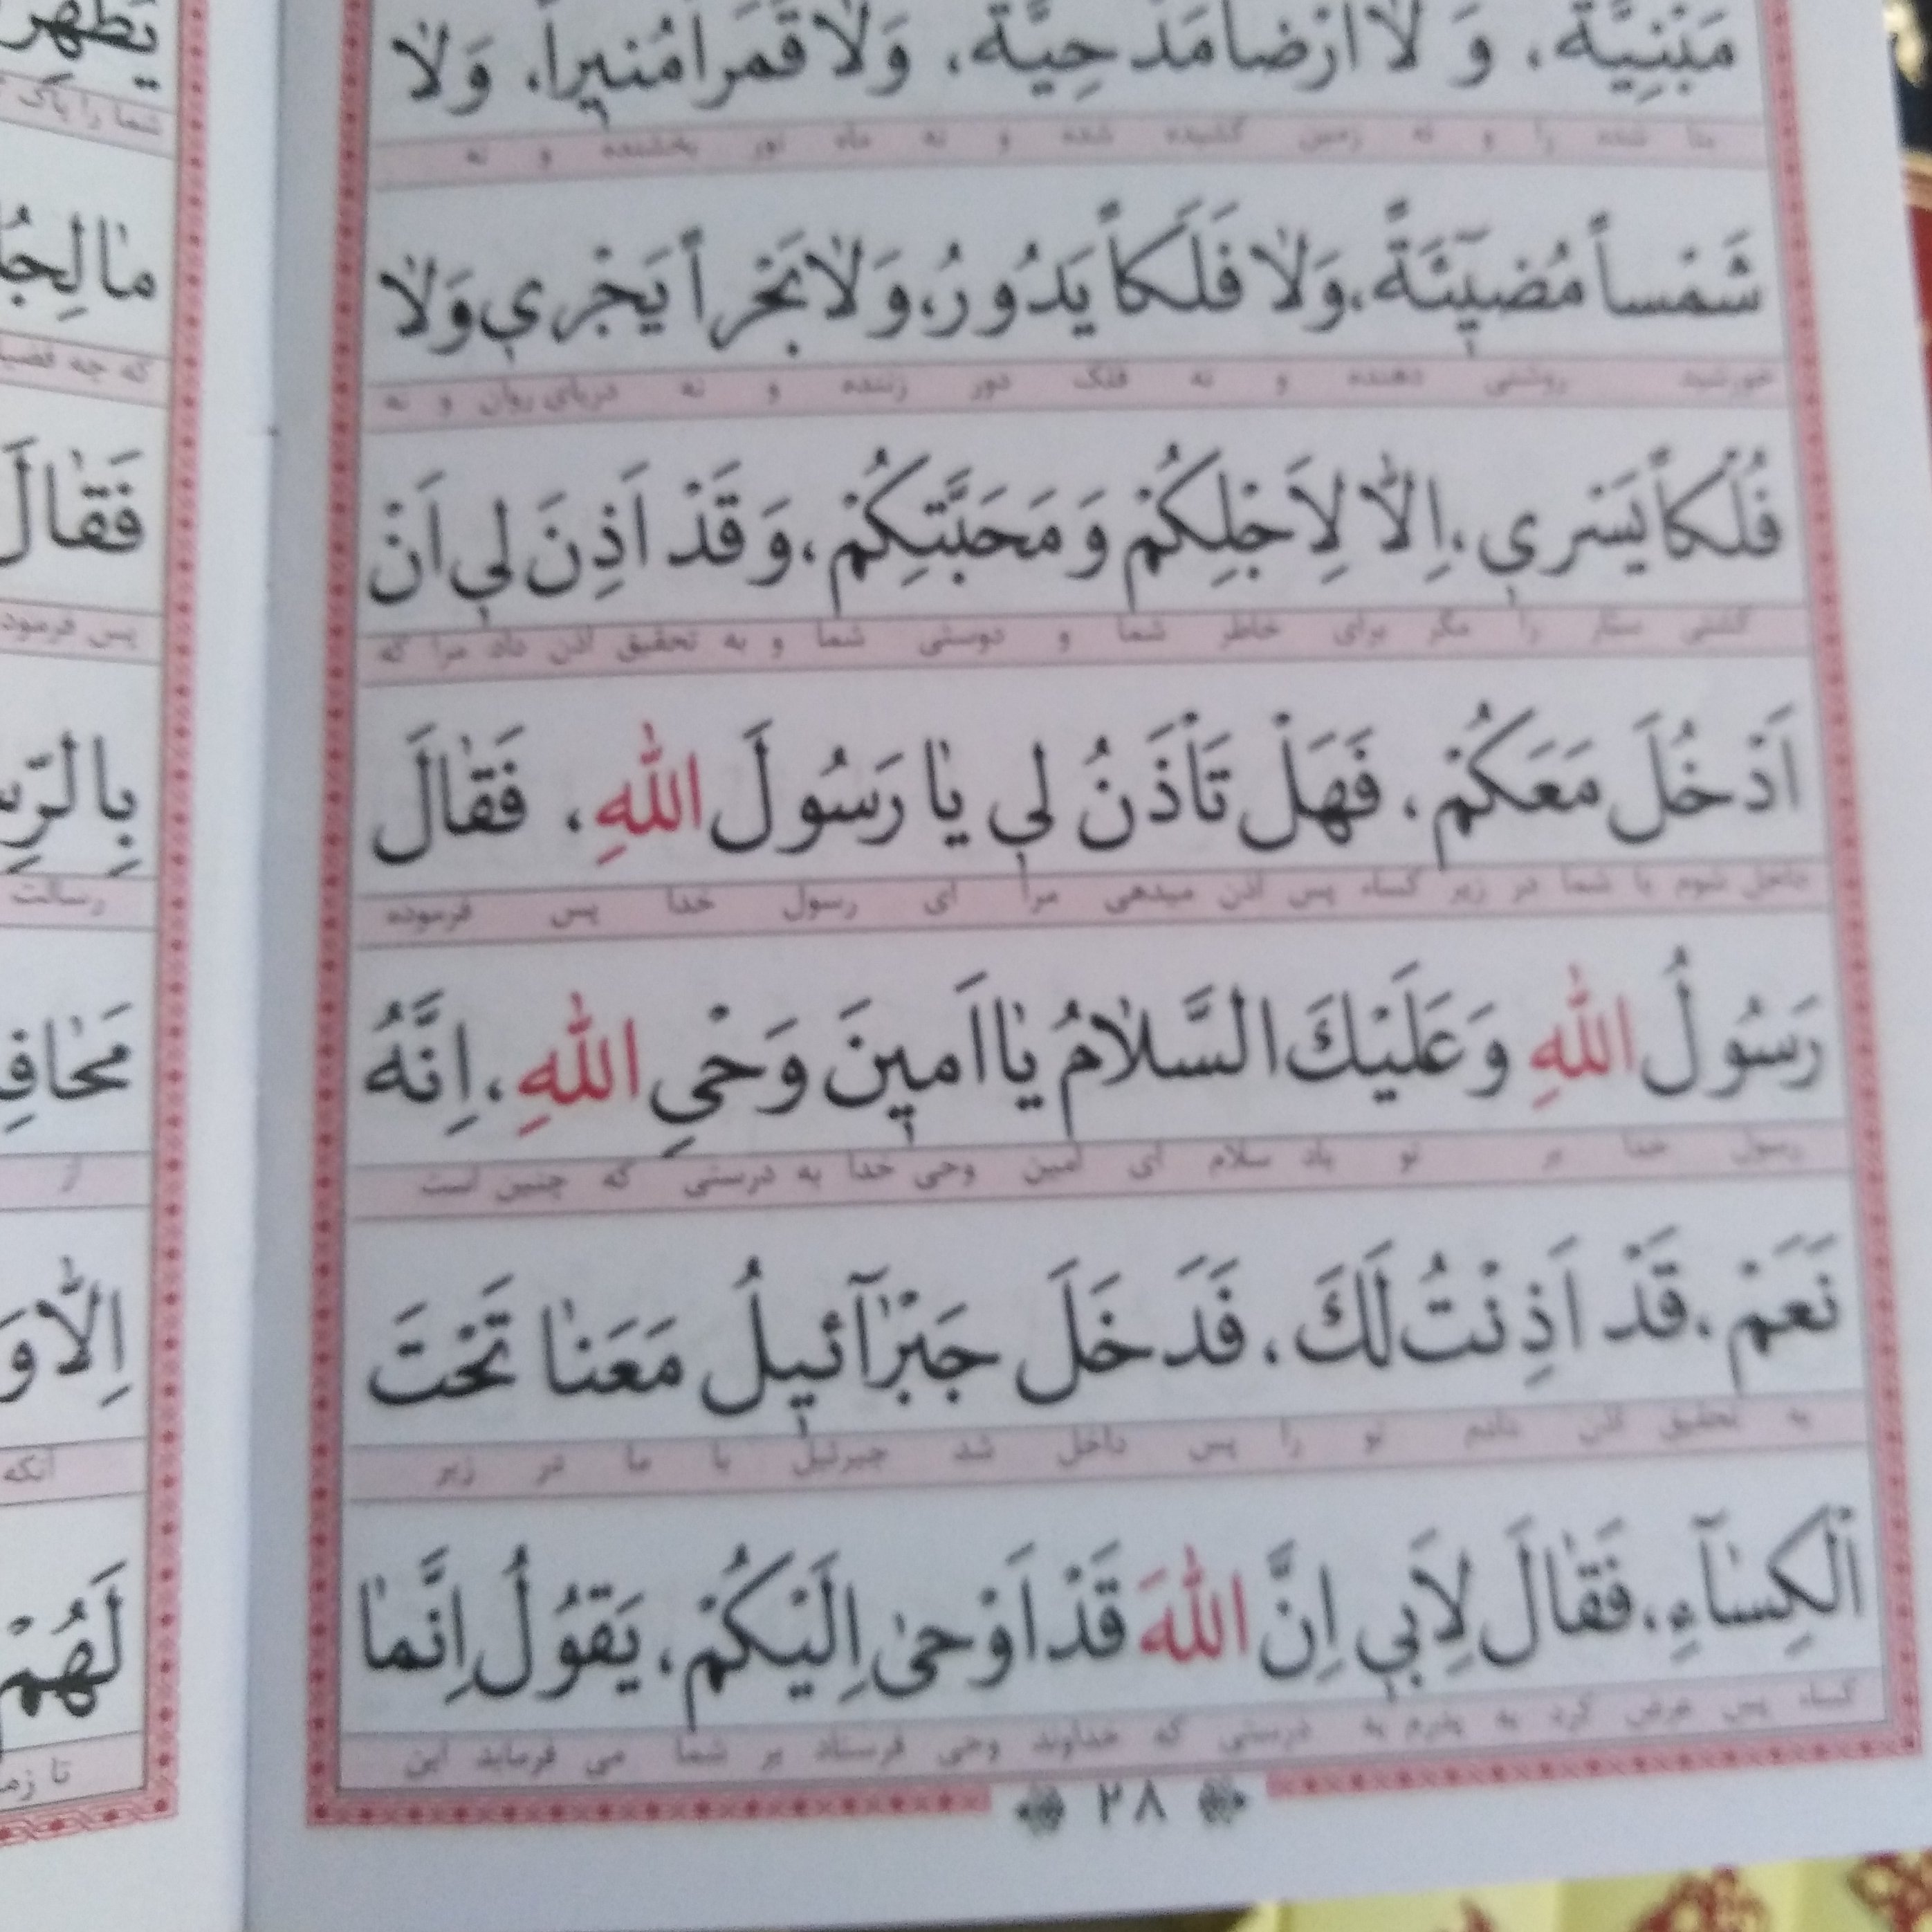 مَبْنِيَّةً، وَ لَا اَرْضاً مَدْحِيَّةً، وَلَا قَمَراً مُنيراً، وَلَا
بنا شده را و نه زمین کشیده شده و نه ماه نور بخشنده و نه
شَمْساً مُضيۤئَةً، وَلَا فَلَكاً يَدُورُ، وَلَا بَحْراً يَجْري وَلَا
خورشید روشنی دهنده و نه فلک دور زننده و نه دریای روان و نه
فُلْكاً يَسْري، اِلَّا لِاَجْلِكُمْ وَ مَحَبَّتِكُمْ، وَ قَدْ اَذِنَ لي اَنْ
کشتی ستار را مگر برای خاطر شما و دوستی شما و به تحقیق اذن داد مرا که
اَدْخُلَ مَعَكُمْ، فَهَلْ تَأْذَنُ لي يٰا رَسُولَ اللّٰهِ، فَقٰالَ
داخل شوم با شما در زیر کساء پس اذن میدهی مرا ای رسول خدا پس فرموده
رَسُولُ اللّٰهِ وَعَلَيْكَ السَّلٰامُ يٰا اَمينَ وَحْيِ اللّٰهِ، اِنَّهُ
رسول خدا بر تو باد سلام ای امین وحی خدا به درستی که چنین است
نَعَمْ، قَدْ اَذِنْتُ لَكَ، فَدَخَلَ جَبْرٰآئيلُ مَعَنٰا تَحْتَ
به تحقیق اذن دادم تو را پس داخل شد جبرئیل با ما در زیر
الْكِسٰآءِ، فَقٰالَ لِاَبي اِنَّ اللّٰهَ قَدْ اَوْحىٰ اِلَيْكُمْ، يَقُولُ اِنَّمٰا
کساء پس عرض کرد به پدرم به درستی که خداوند وحی فرستاد بر شما می فرماید این
۲۸
شما را پاک
مٰا لِجُ
که چه
فَقٰالَ
پس فرمود
رسالت
از
اِلّٰا وَ
آنکه
لَهُمْ